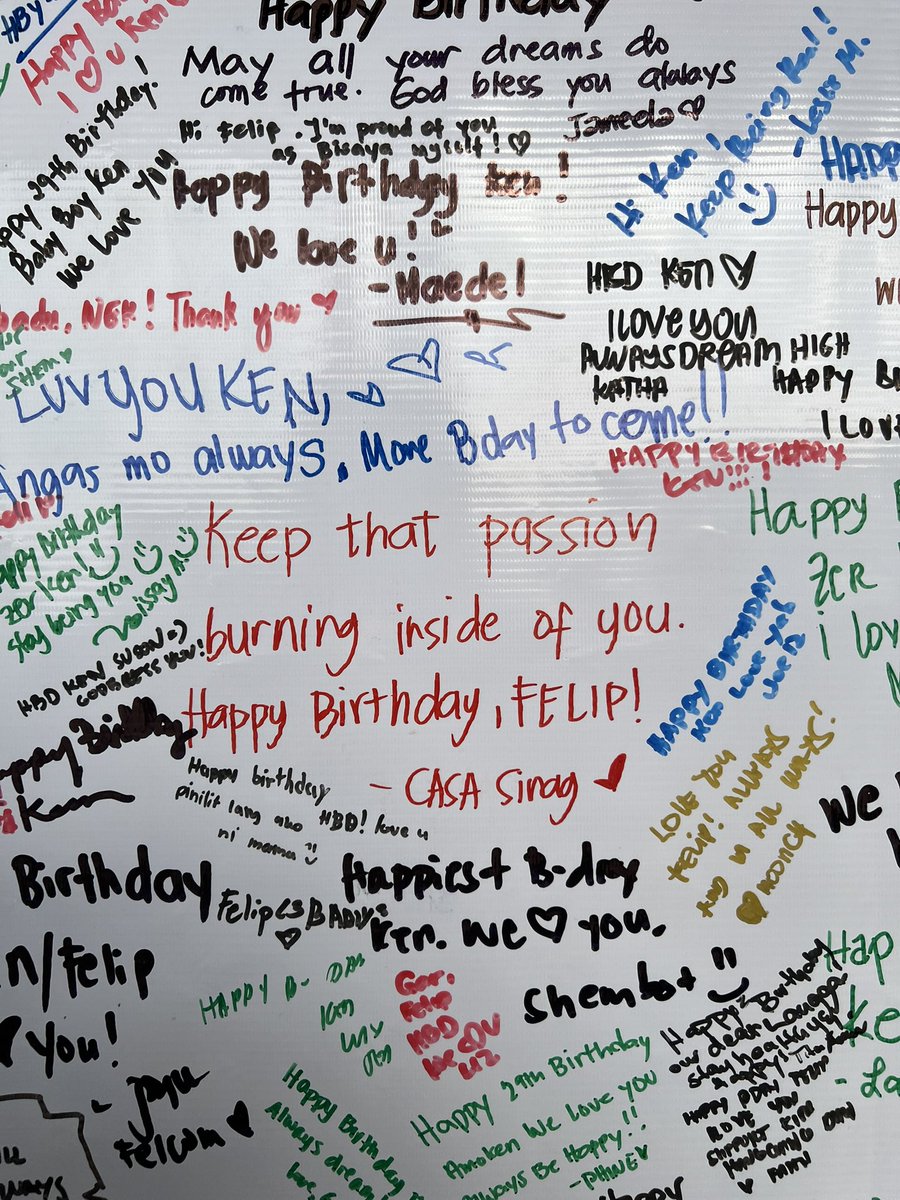 Happy Birthday
HBY
Happy
I ♡ U Ken
May all your dreams do
come true. God bless you always
Jameela ♡
Hi Felip. I'm proud of you
as Bisaya myself! ♡
29th Birthday!
Baby Boy Ken
We Love You
Happy Birthday Ken!
We love u!
-Maedel
Hi Ken!
Keep Being Real!
- Lesis M.
HAPPY
Happy
HBD KEN ♡
I LOVE YOU
ALWAYS DREAM HIGH
KATHA
NEK! Thank you ♥
SHEM ♡
LUV YOU KEN,
Angas mo always, More Bday to come!!
HAPPY
I LOVE
HAPPY BIRTHDAY
KEN!!!
Happy Birthday
zer Ken!
stay being you
Keep that passion
burning inside of you.
Happy Birthday, FELIP!
- CASA Sinag ♥
Happy
Zer
i lov
HAPPY BIRTHDAY
HBD KEN SUSON =)
GOD BLESS YOU!
Happy Birthday
Ken
Happy birthday
pinilit lang ako HBD! love u
ni mama
LOVE YOU
FELIP! ALWAYS
AND IN ALL WAYS!
We
Birthday
n/Felip
You!
Felip <3 BABY
Happiest B-day
Ken. We ♡ you.
Shembot
HAPPY B-DAY
Ken
Felip
HBD
Hap
Ke
- La
Happy Birthday
our dear
stay healthy
& happy!
HAPPY BDAY
I LOVE YOU
Felcum ♥
Happy Birthday
Always dream
Happy 29th Birthday
We love you
Always Be Happy!!